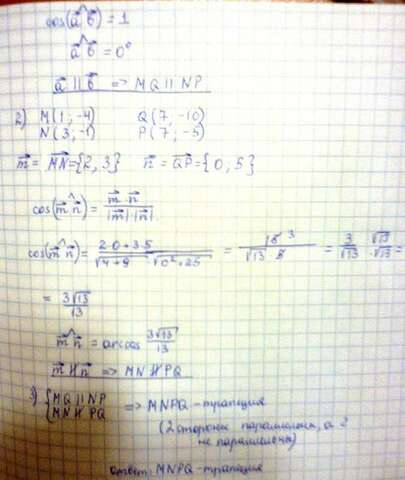 cos(a⃗^b⃗) = 1
a⃗^b⃗ = 0°
a⃗ || b⃗ => MQ || NP
2) M(1; -4) Q(7; -10)
N(3; -1) P(7; -5)
m⃗ = MN⃗ = {2, 3} n⃗ = QP⃗ = {0, 5}
cos(m⃗^n⃗) = m⃗·n⃗ / |m⃗|·|n⃗|
cos(m⃗^n⃗) = 2·0+3·5 / √4+9 √0²+25 = 15 3 / √13 · 5 = 3/√13 · √13/√13 =
= 3√13 / 13
m⃗^n⃗ = arccos 3√13 / 13
m⃗ ∦ n⃗ => MN ∦ PQ
3) { MQ || NP
MN ∦ PQ => MNPQ - трапеция
(2 стороны параллельны, а 2
не параллельны)
Ответ: MNPQ - трапеция